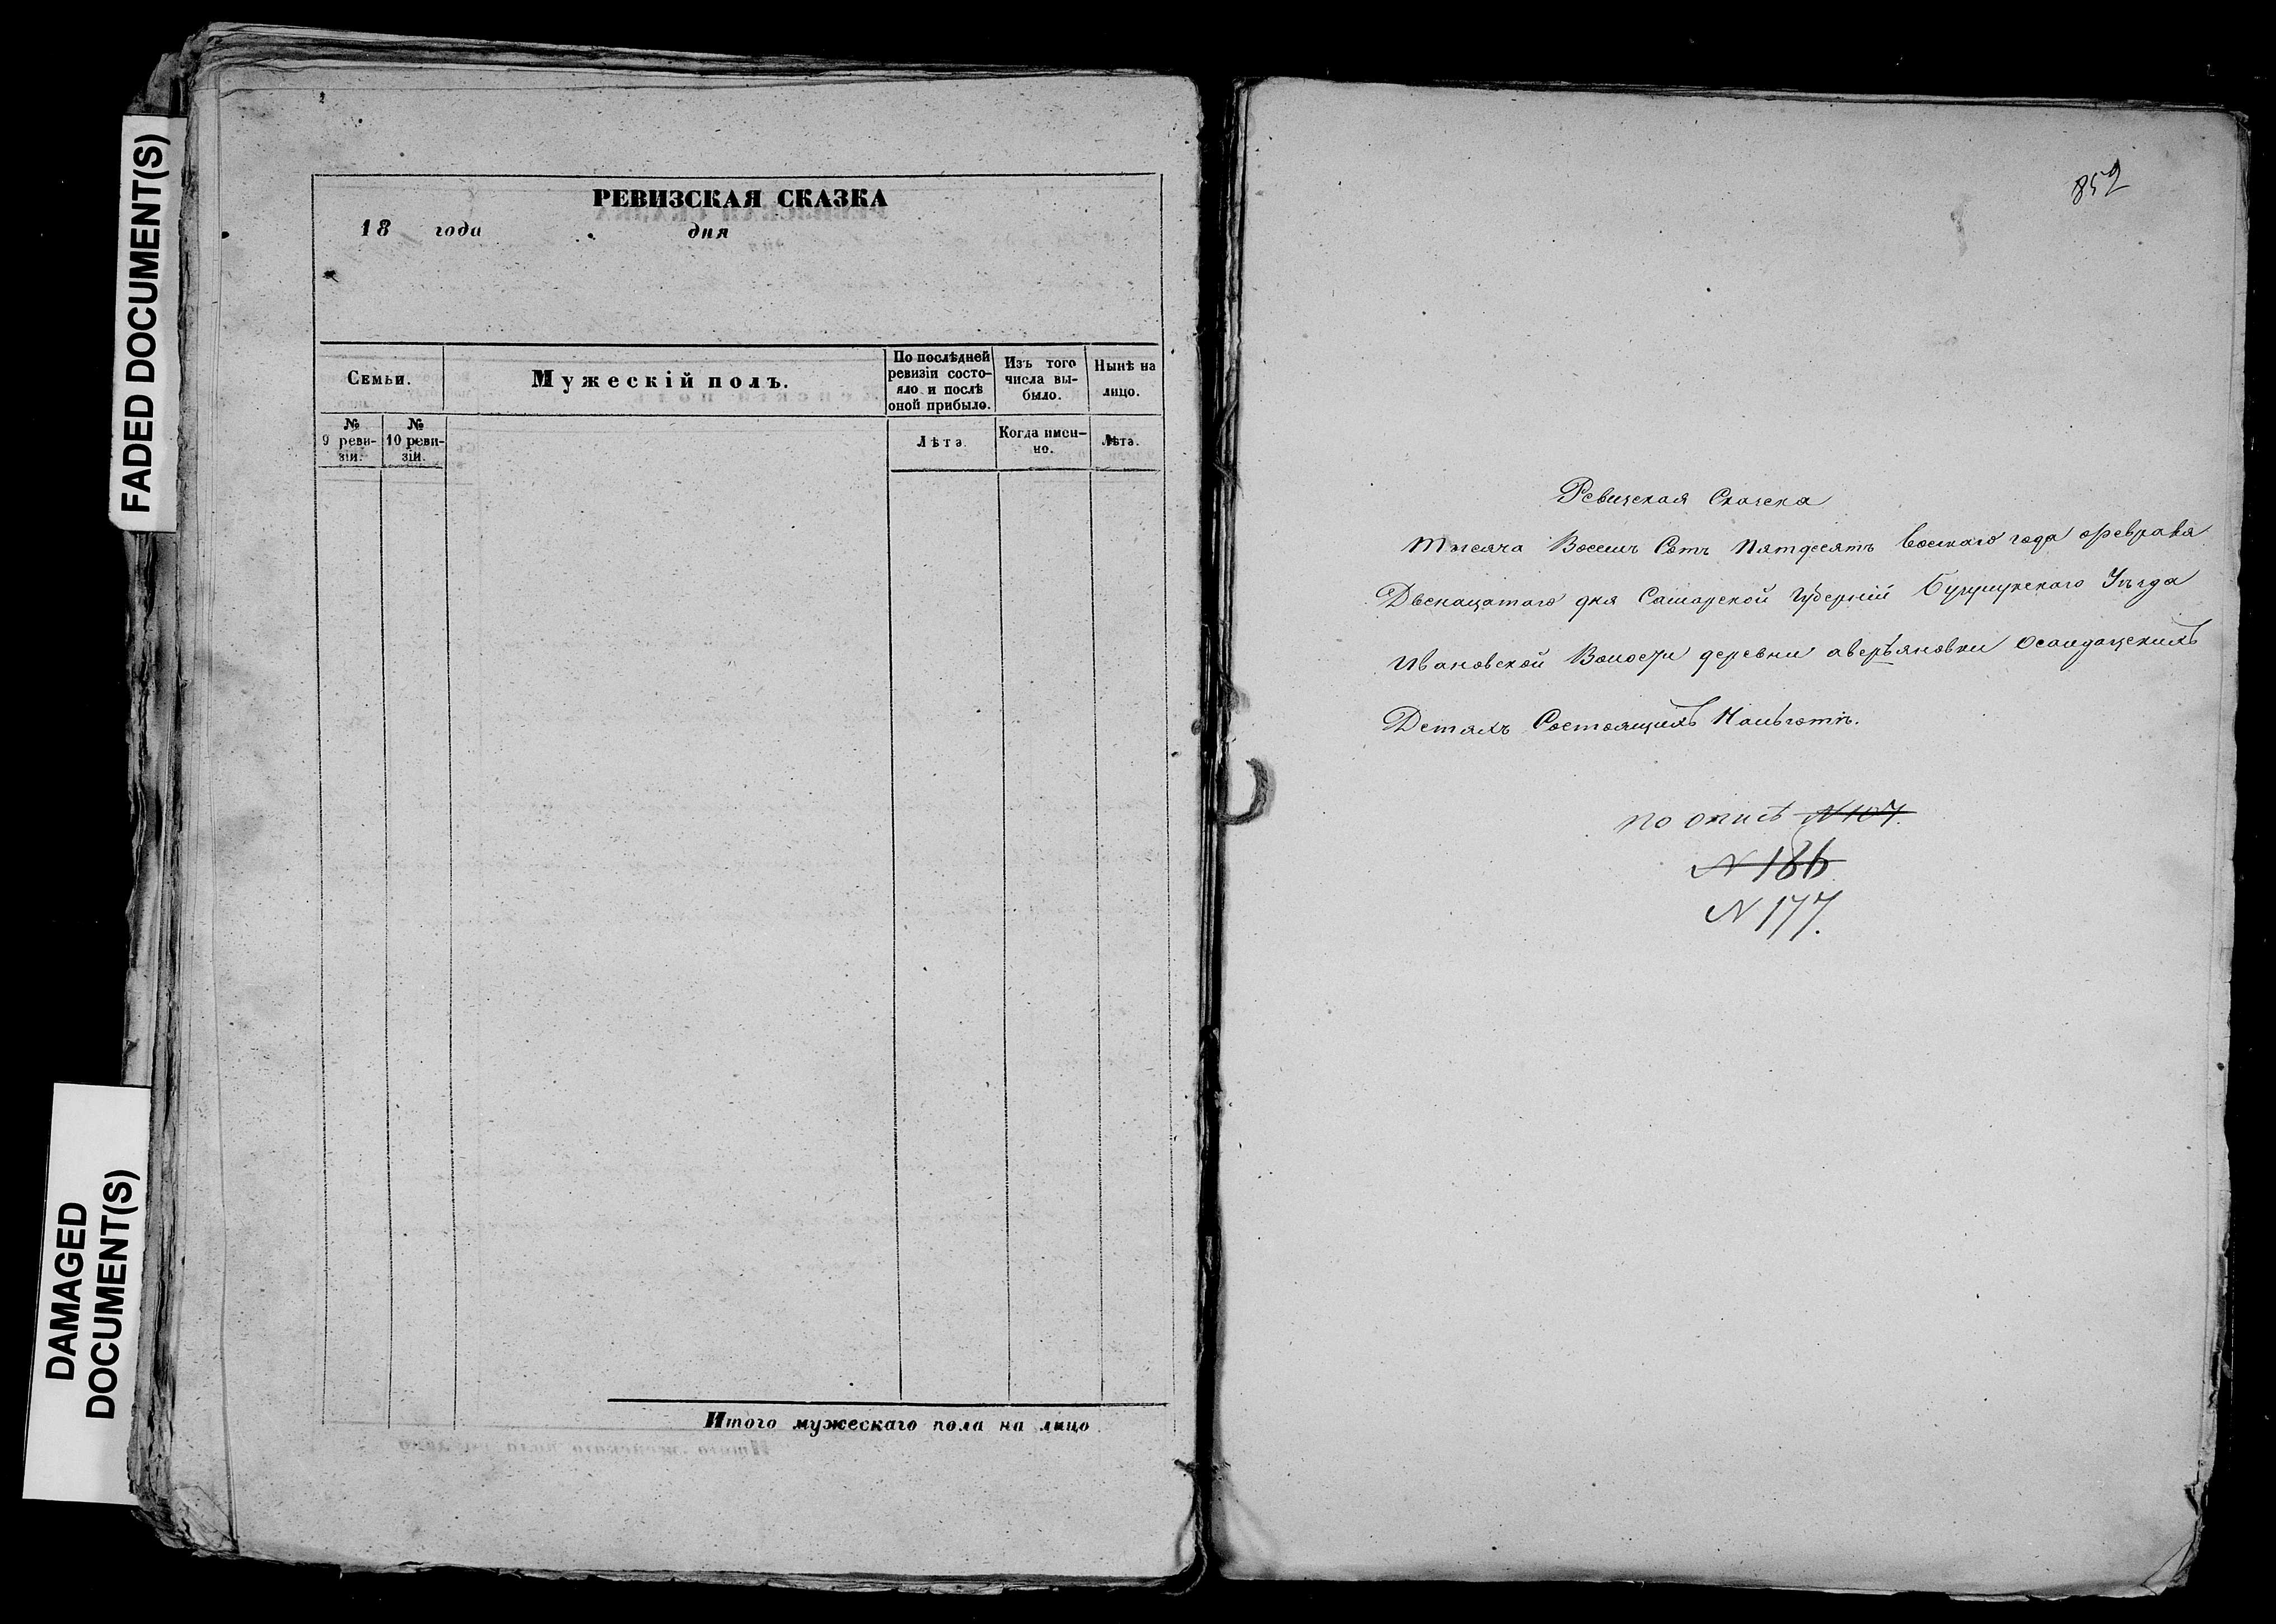 FADED DOCUMENT(S)
DAMAGED
DOCUMENT(S)
РЕВИЗСКАЯ СКАЗКА
18 года дня
Семьи.
Мужескій полъ.
По послѣдней
ревизіи состо-
яло и послѣ
оной прибыло.
Изъ того
числа вы-
было.
Нынѣ на
лицо.
№
9 реви-
зіи.
№
10 реви-
зіи.
Лѣта
Когда имен-
но.
Лѣта.
Итого мужескаго пола на лицо
852
Ревизская Сказка
Тысяча Восемь Сотъ Пятдесятъ Восмаго года февраля
Двенацатаго дня Самарской Губерніи Бузулукского Уѣзда
Ивановской Волости деревни аверьяновки Солдацкихъ
Детяхъ Состоящихъ Нальготѣ.
по описѣ N 107.
N 186
N 177.